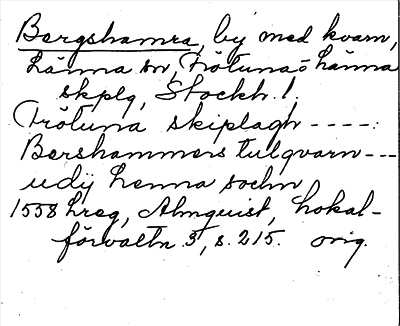 Bergshamra, by med kvarn,
Länna sn, Frötuna o Länna
skplg, Stockh. l.
Frötuna skiplagh ----:
Bershammers tulqvarn ---
udij Lenna sochn
1558 hreg, Almquist, Lokal-
förvaltn. 3, s. 215. orig.